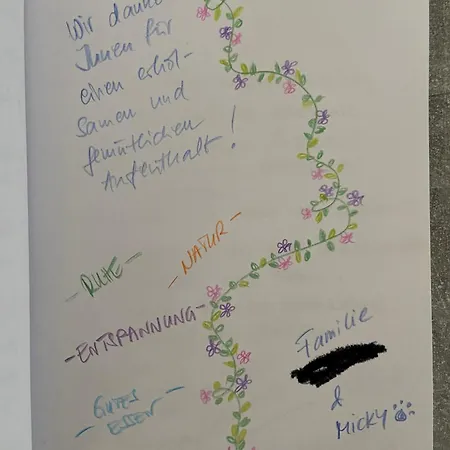 Wir danken
Ihnen für
einen erhol-
samen und
gemütlichen
Aufenthalt!
- RUHE -
- NATUR -
- ENTSPANNUNG -
- GUTES
ESSEN -
Familie
&
Micky